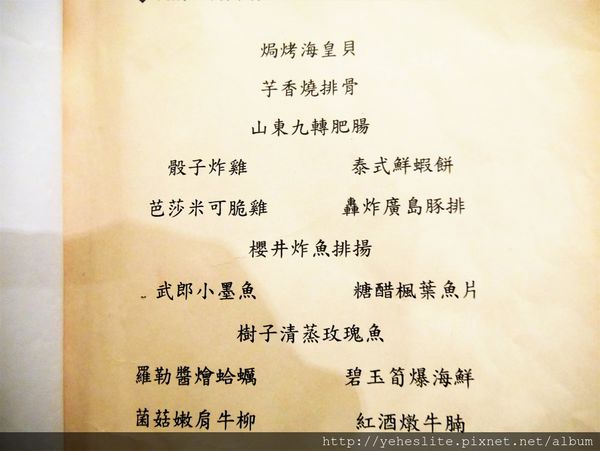 焗烤海皇貝
芋香燒排骨
山東九轉肥腸
骰子炸雞 泰式鮮蝦餅
芭莎米可脆雞 轟炸廣島豚排
櫻井炸魚排揚
武郎小墨魚 糖醋楓葉魚片
樹子清蒸玫瑰魚
羅勒醬燴蛤蠣 碧玉筍爆海鮮
菌菇嫩肩牛柳 紅酒燉牛腩
http://yeheslite.pixnet.net/album